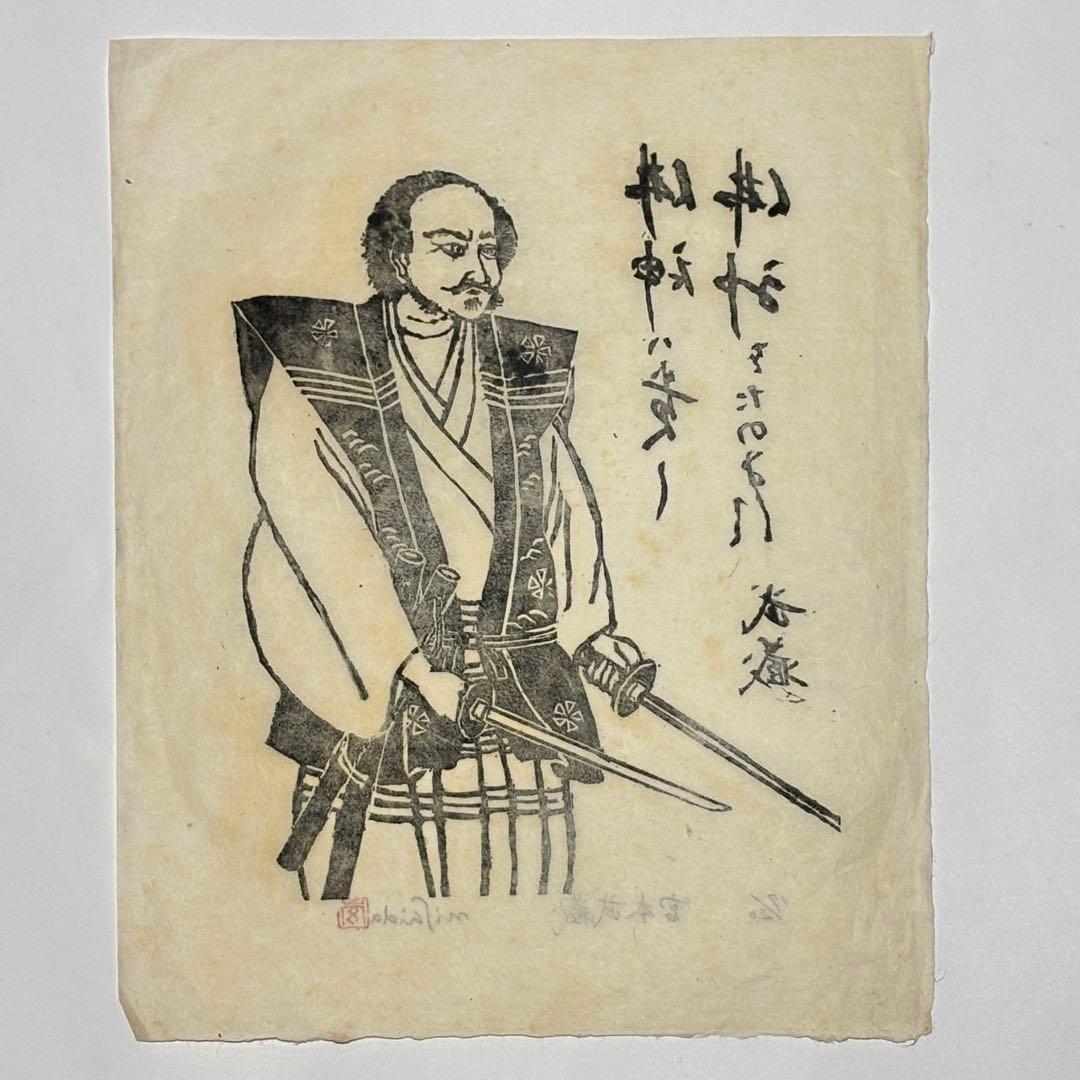 佛神ハ貴し
佛神をたのまず
武蔵
宮本武蔵
nishida